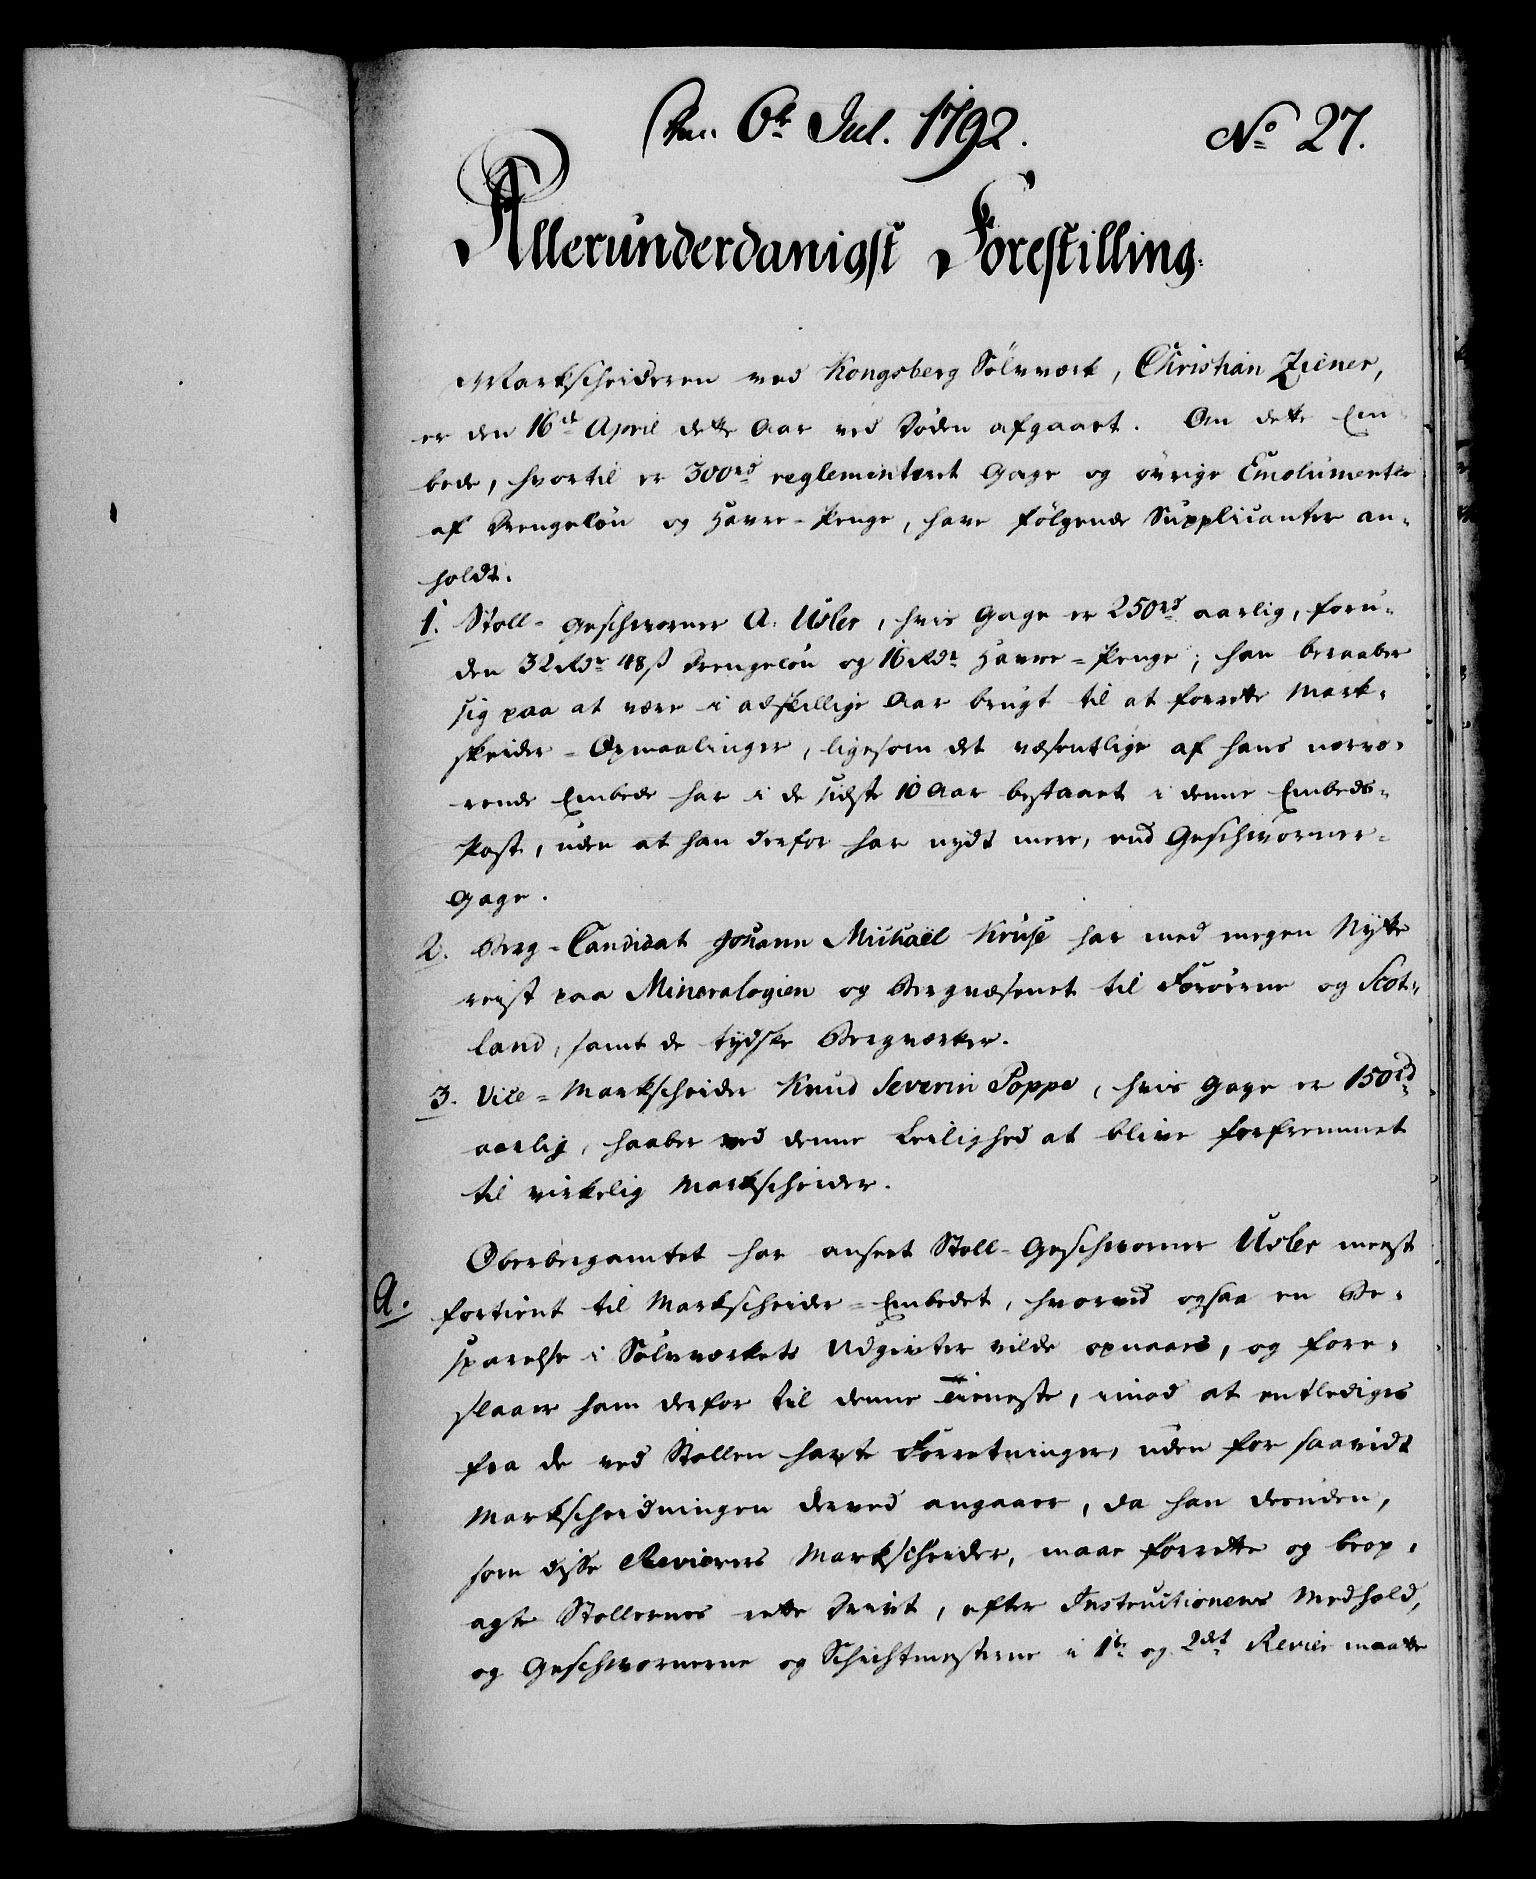 Den 6te Jul. 1792. No 27.
Allerunderdanigst Forestilling.
Markscheideren ved Kongsberg Sølvværk, Christian Ziener,
er den 16de April dette Aar ved Døden afgaaet. Om dette Em-
bede, hvortil er 300rd reglementeret Gage og øvrige Emolumenter
af Drengeløn og Havre-Penge, have følgende Supplicanter an-
holdt.
1. Stoll-Geschworner A. Usler, hvis Gage er 250rd aarlig, foru-
den 32 Rdr 48 ß Drengeløn og 16 Rdr Havre-Penge; han beraaber
sig paa at være i adskillige Aar brugt til at forrette Mark-
skeider-Opmaalinger, ligesom det væsentlige af hans nærvæ-
rende Embede har i de sidste 10 Aar bestaaet i denne Embeds-
Post, uden at han derfor har nydt mere, end Geschworner-
Gage.
2. Berg-Candidat Johann Michaël Kruse har med megen Nytte
reist paa Mineralogien og Bergvæsenet til Færøerne og Scot-
land, samt de tydske Bergværker.
3. Vice-Markscheider Knud Severin Poppe, hvis Gage er 150rd
aarlig, haaber ved denne Leilighed at blive forfremmet
til virkelig Markscheider.
Oberbergamtet har anseet Stoll-Geschworner Usler meest
A. fortient til Markscheider-Embedet, hvorved ogsaa en Be-
sparelse i Sølvværkets Udgivter vilde opnaaes, og fore-
slaaer ham derfor til denne Tieneste, imod at entlediges
fra de ved Stollen havte Forretninger, uden for saavidt
Markscheidningen derved angaaer, da han desuden,
som disse Revierers Markscheider, maae forrette og beop-
agte Stollernes rette Drivt, efter Instructionens Medhold,
og Geschwornerne og Schichtmesterne i 1te og 2det Revier maatte